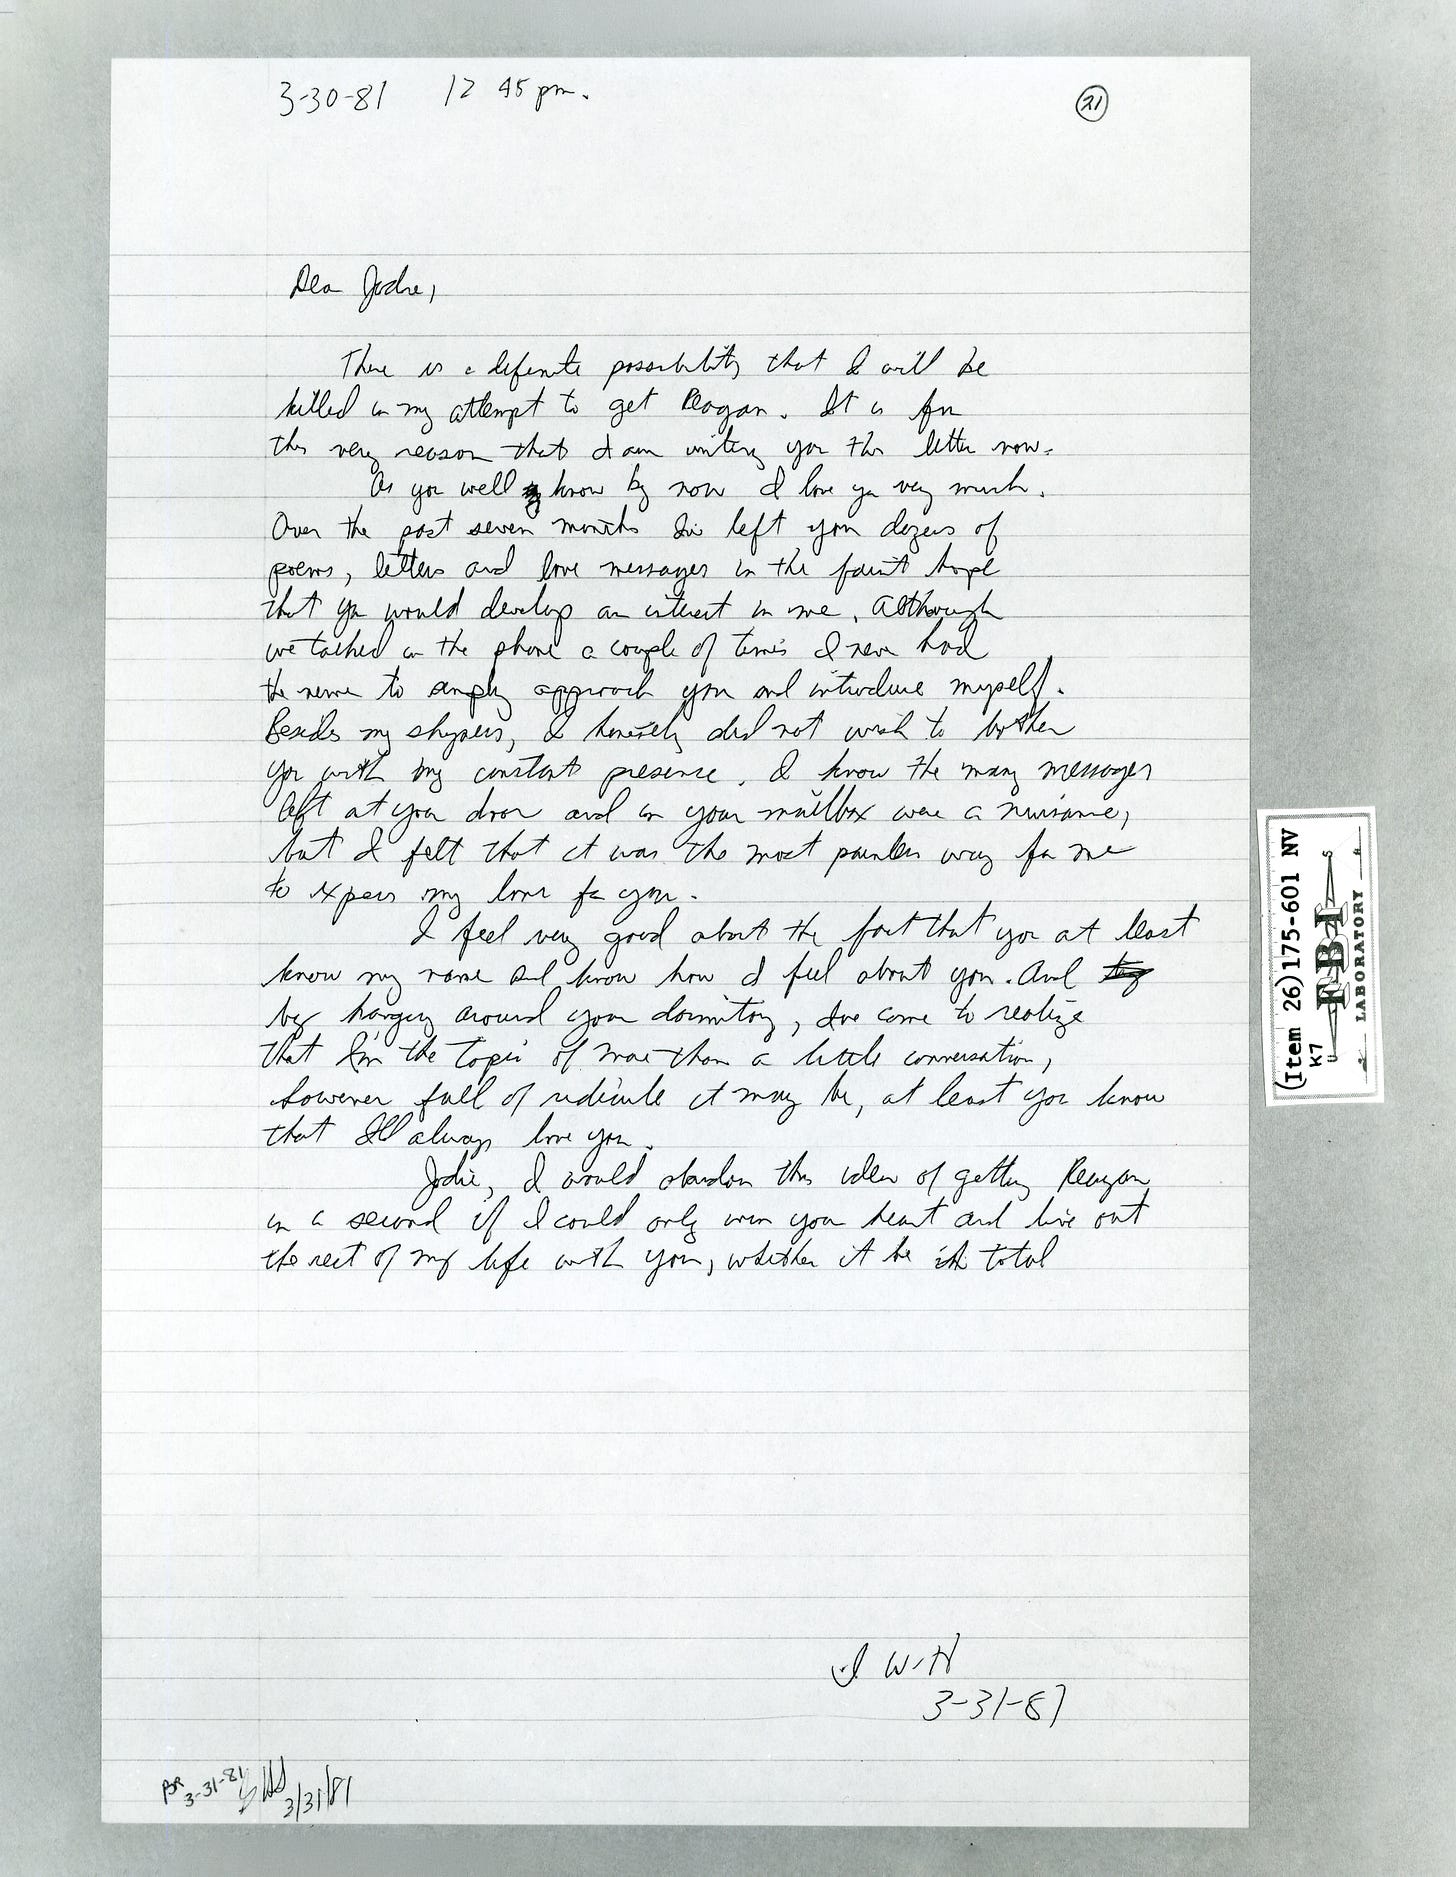 3-30-81 12 45 pm.
21
Dear Jodie,
There is a definite possibility that I will be
killed in my attempt to get Reagan. It is for
this very reason that I am writing you this letter now.
As you well know by now I love you very much.
Over the past seven months I've left you dozens of
poems, letters and love messages in the faint hope
that you would develop an interest in me. Although
we talked on the phone a couple of times I never had
the nerve to simply approach you and introduce myself.
Besides my shyness, I honestly did not wish to bother
you with my constant presence. I know the many messages
left at your door and in your mailbox were a nuisance,
but I felt that it was the most painless way for me
to express my love for you.
I feel very good about the fact that you at least
know my name and know how I feel about you. And
by hanging around your dormitory, I've come to realize
that I'm the topic of more than a little conversation,
however full of ridicule it may be, at least you know
that I'll always love you.
Jodie, I would abandon this idea of getting Reagan
in a second if I could only win your heart and live out
the rest of my life with you, whether it be in total
3-31-81
BR
3-31-81
3/31/81
(Item 26)175-601 NV
K7
FBI
LABORATORY